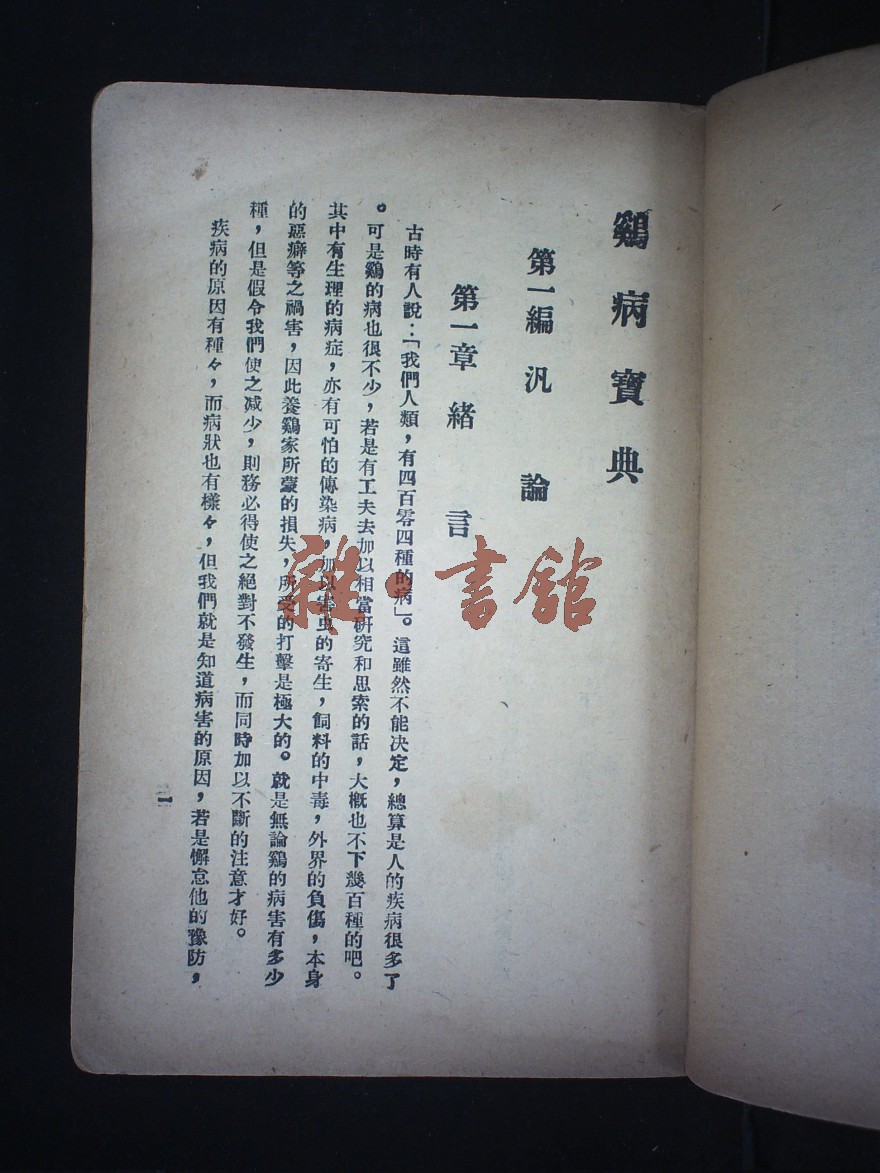 鷄病寶典
第一編 汎論
第一章 緒言
古時有人說：「我們人類，有四百零四種的病」。這雖然不能决定，總算是人的疾病很多了
。可是鷄的病也很不少，若是有工夫去加以相當研究和思索的話，大槪也不下幾百種的吧。
其中有生理的病症，亦有可怕的傳染病，加以害虫的寄生，飼料的中毒，外界的負傷，本身
的惡癖等之禍害，因此養鷄家所蒙的損失，所受的打擊是極大的。就是無論鷄的病害有多少
種，但是假令我們使之减少，則務必得使之絕對不發生，而同時加以不斷的注意才好。
疾病的原因有種々，而病狀也有樣々，但我們就是知道病害的原因，若是懈怠他的豫防，
一
雜·書館